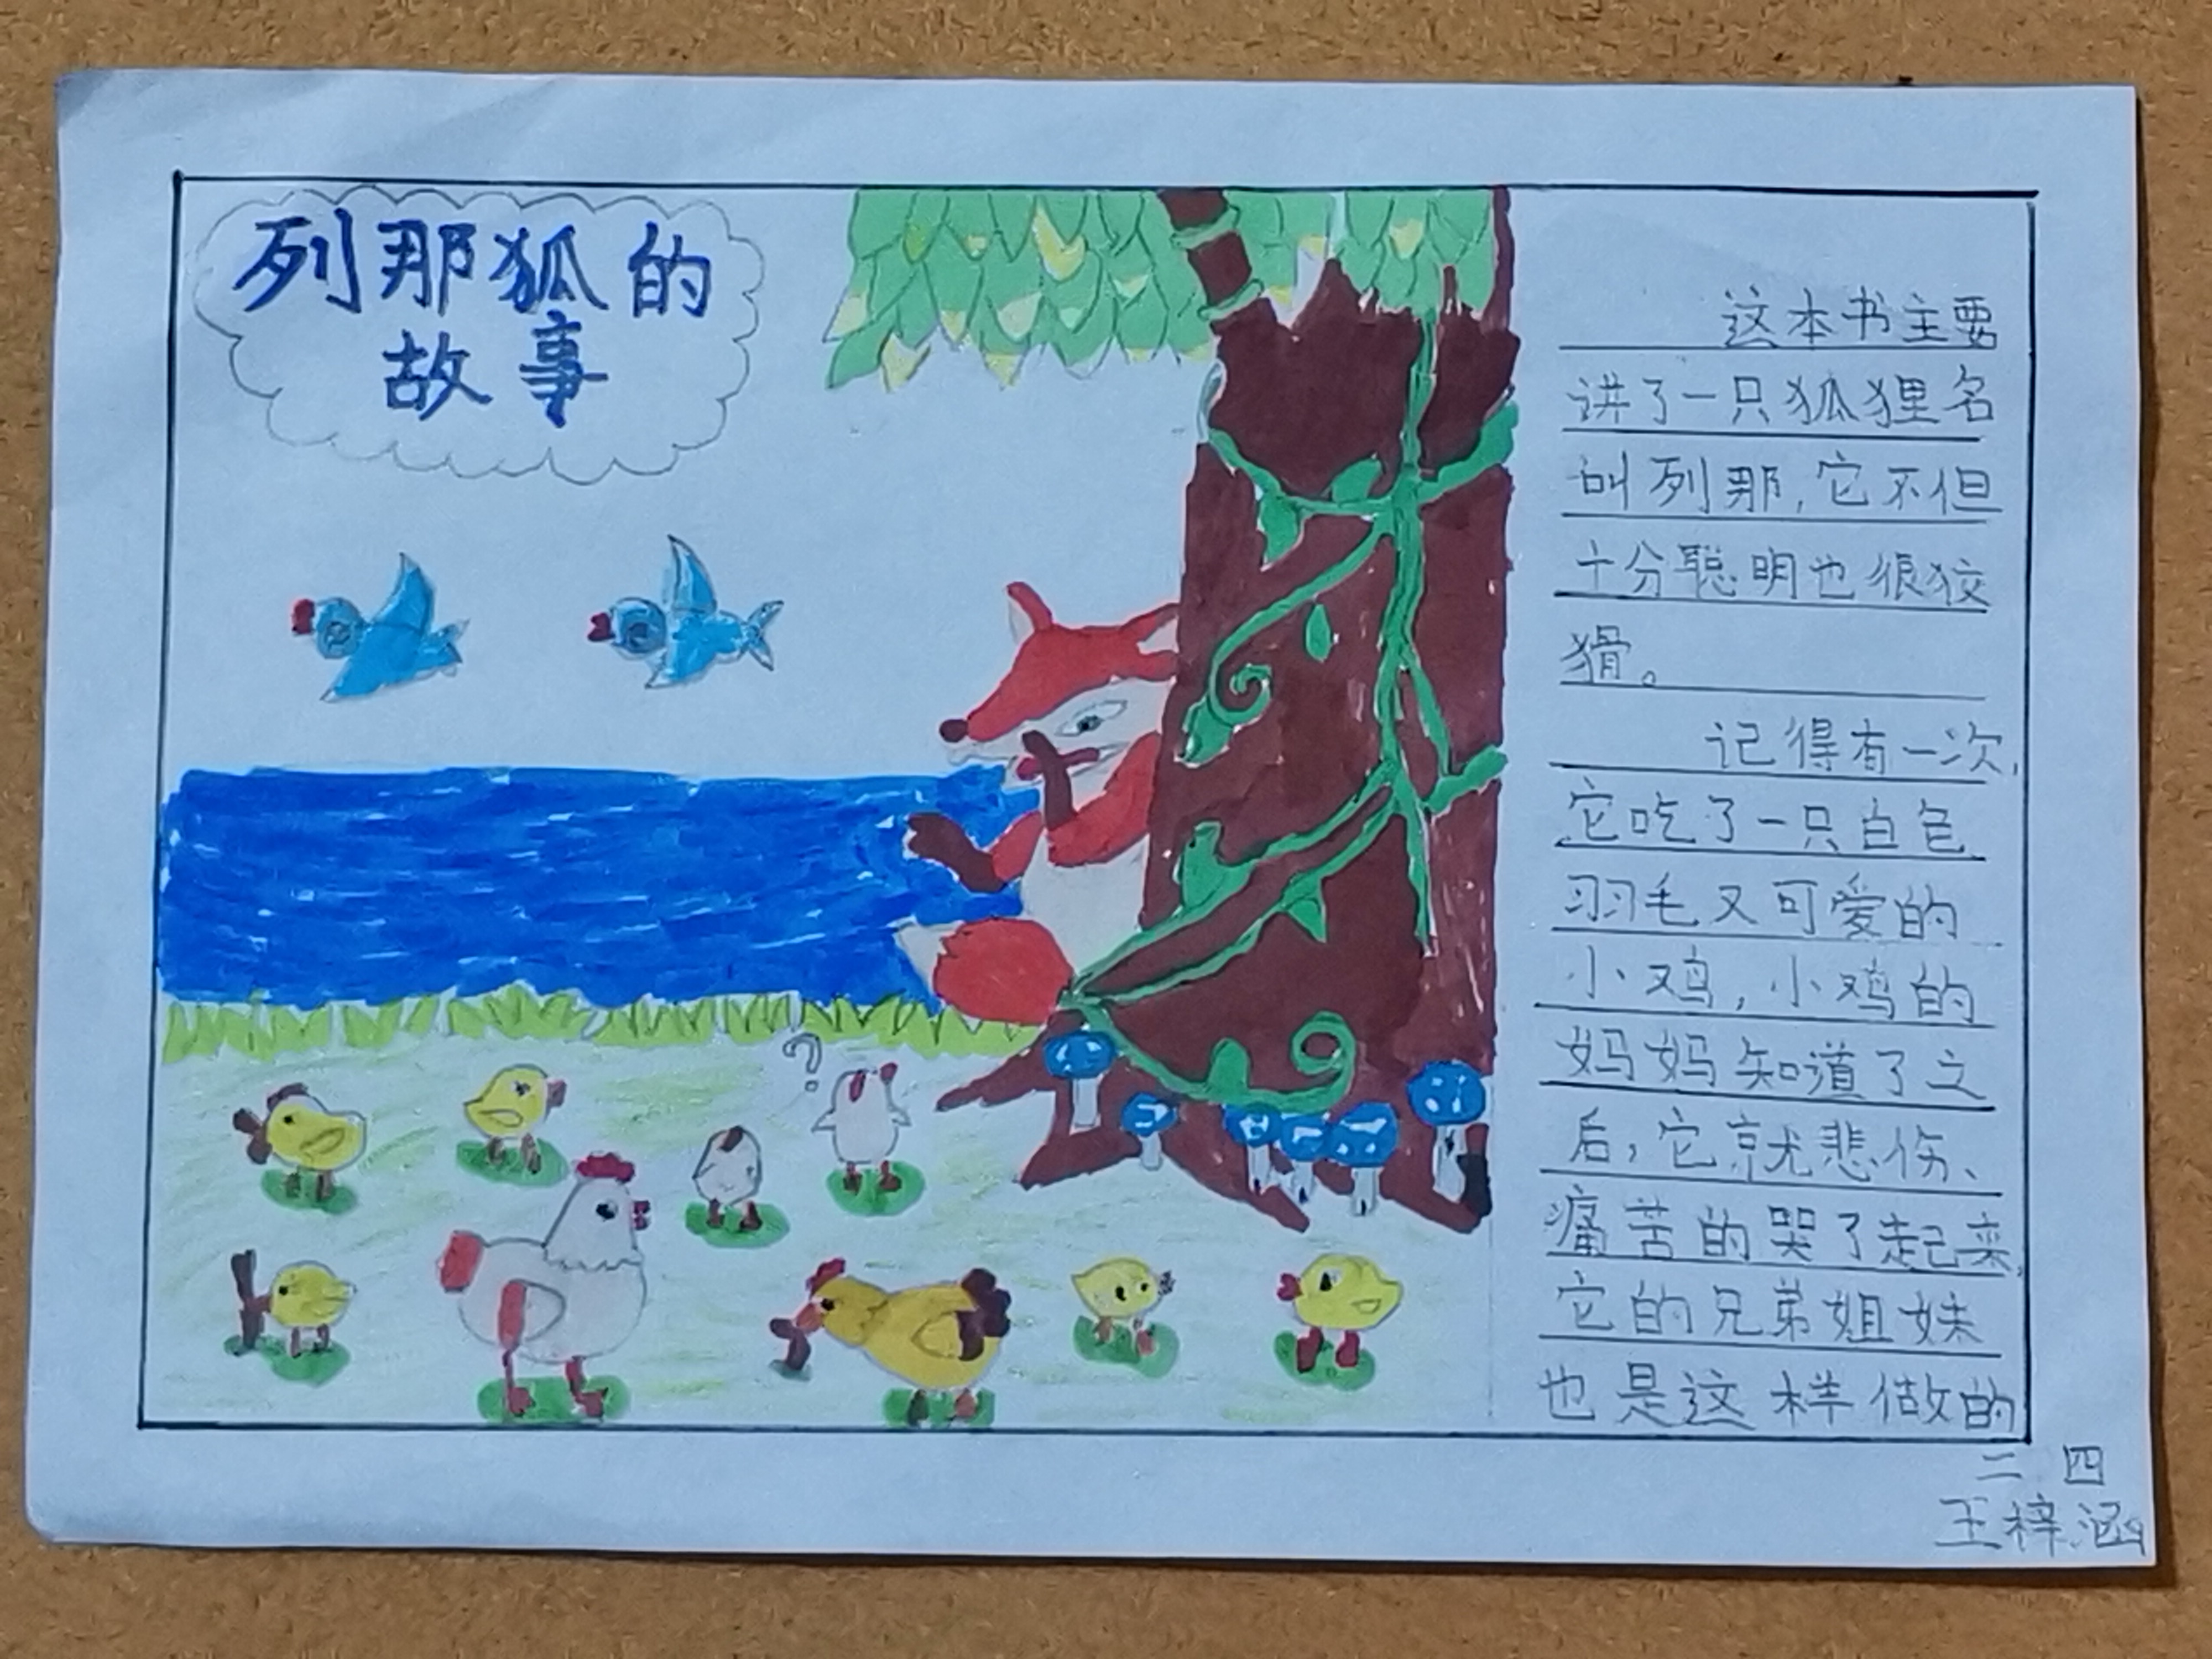 列那狐的
故事
?
这本书主要
讲了一只狐狸名
叫列那,它不但
十分聪明也很狡
猾。
记得有一次,
它吃了一只白色
羽毛又可爱的
小鸡,小鸡的
妈妈知道了之
后,它就悲伤、
痛苦的哭了起来,
它的兄弟姐妹
也是这样做的
二 四
王梓涵